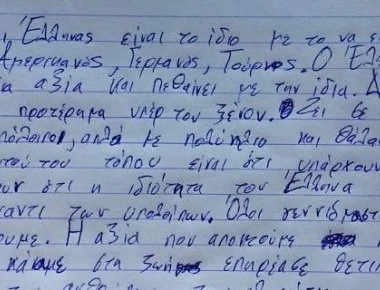 Έλληνας είναι το ίδιο με το να εί
Αμερικανός, Γερμανός, Τούρκος. Ο Έλ
ια αξία και πεθαίνει με την ίδια. Δ
προτέρημα υπέρ του ξένου. Ζει σε
πόλοιποι, απλά με πολύ ήλιο και θάλα
του τόπου είναι ότι υπάρχουν
ουν ότι η ιδιότητα του Έλληνα
ναντι των υπολοίπων. Όλοι γεννιόμαστ
ουμε. Η αξία που αποκτούμε
κάναμε στη ζωή επηρέασε θετι